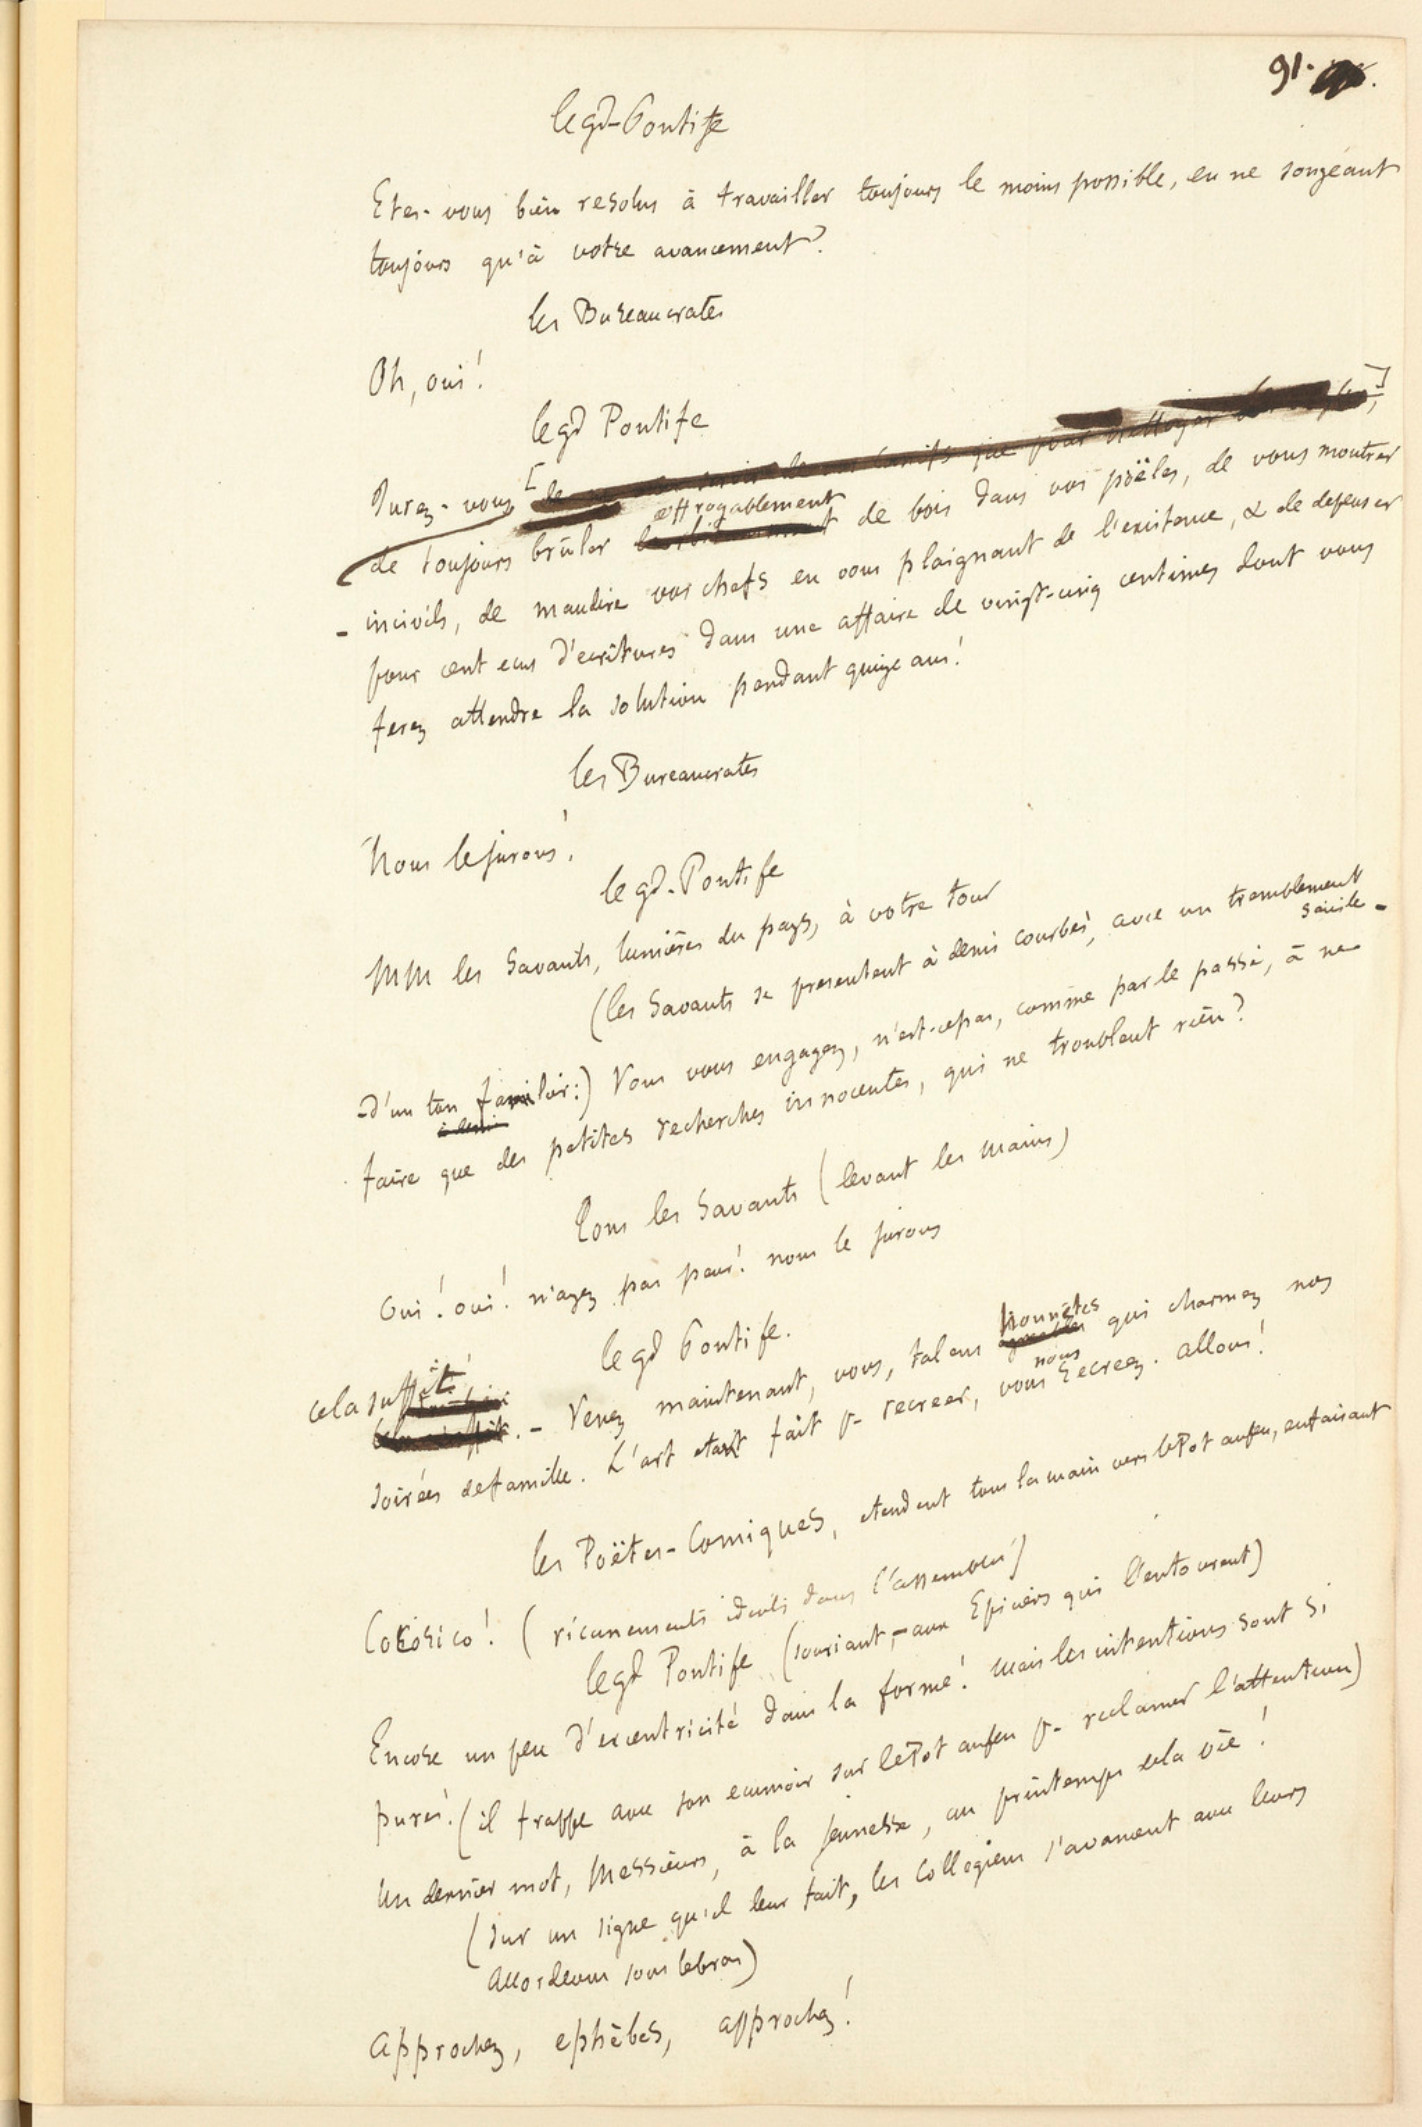 91.
le gd-Pontife
Etes-vous bien resolus à travailler toujours le moins possible, en ne songeant
toujours qu'à votre avancement?
les Bureaucrates
Oh, oui!
le gd Pontife
Jurez-vous [de canifs que pour nettoyer ]
effroyablement
de toujours brûler de bois dans vos poëles, de vous montrer
- incivils, de maudire vos chefs en vous plaignant de l'existence, & de depenser
pour cent ecus d'ecritures dans une affaire de vingt-cinq centimes dont vous
ferez attendre la solution pendant quinze ans!
les Bureaucrates
Nous le jurons!
le gd-Pontife
MM les Savants, lumières du pays, à votre tour
(les Savants se presentent à demi courbés, avec un tremblement
senile -
-d'un ton familier:) Vous vous engagez, n'est-ce pas, comme par le passé, à ne
faire que des petites recherches innocentes, qui ne troublent rien?
Tous les Savants (levant les mains)
Oui! oui! n'ayez pas peur! nous le jurons
le gd Pontife.
cela suffit!
honnêtes
. - Venez maintenant, vous, talens qui charmez nos
nous
soirées de famille. L'art etant fait p- recreer, vous recreez. allons!
les Poëtes-Comiques, etendent tous la main vers le Pot au feu, en faisant
Cocorico! (ricanements dans l'assemblée)
le gd Pontife (souriant, - aux Epiciers qui l'entourent)
Encore un peu d'excentricité dans la forme! mais les intentions sont si
pures! (il frappe avec son ecumoir sur le Pot au feu p- reclamer l'attention)
Un dernier mot, Messieurs, à la jeunesse, au printemps de la vie!
(sur un signe qu'il leur fait, les Collegiens s'avancent avec leurs
accordeons sous le bras)
Approchez, ephèbes, approchez!